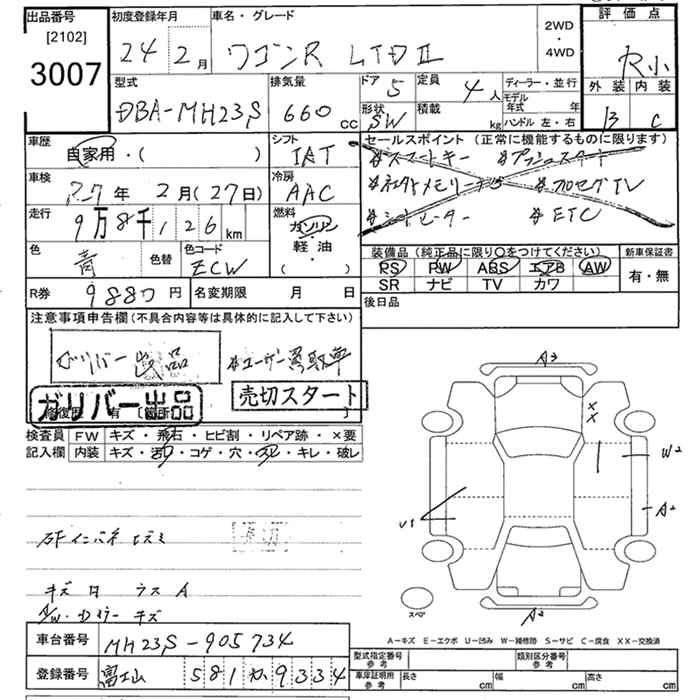 出品番号 初度登録年月 車名・グレード 評価点
[2102] 2WD
3007 24 2月 ワゴンR LTDⅡ ・ R小
4WD
型式 排気量 ドア 5 定員 4人 ディーラー・並行 外装 内装
モデル年式 年
DBA-MH23S 660cc 形状 SW 積載 kg ハンドル 左・右 B C
車歴 シフト セールスポイント (正常に機能するものに限ります)
自家用・( ) IAT *スマートキー *プッシュスタート
車検 冷房 *社外メモリーナビ *フルセグTV
27年 2月(27日) AAC *シートヒーター *ETC
走行 燃料
9万8千126km ガソリン
軽油・( )
色 色替 色コード 装備品 (純正品に限り○をつけてください) 新車保証書
青 ZCW PS PW ABS エアB AW 有・無
SR ナビ TV カワ
R券 9880円 名変期限 月 日 後日品
注意事項申告欄(不具合内容等は具体的に記入して下さい)
ガリバー出品 *ユーザー買取車
ガリバー出品 売切スタート
修復歴 有 [箇所 ]
検査員 FW キズ・飛石・ヒビ割・リペア跡・×要
記入欄 内装 キズ・汚れ・コゲ・穴・スレ・キレ・破レ
A3
XX
W2
A2
U1
キズ 凹 ウスA
A/W・Dミラー キズ
スペア
A2
A−キズ E−エクボ U−凹み W−補修跡 S−サビ C−腐食 XX−交換済
車台番号 MH23S-905734
型式指定番号 参考 類別区分番号 参考
登録番号 富士山 581 か 9334
車庫証明用 参考 長さ cm 幅 cm 高さ cm